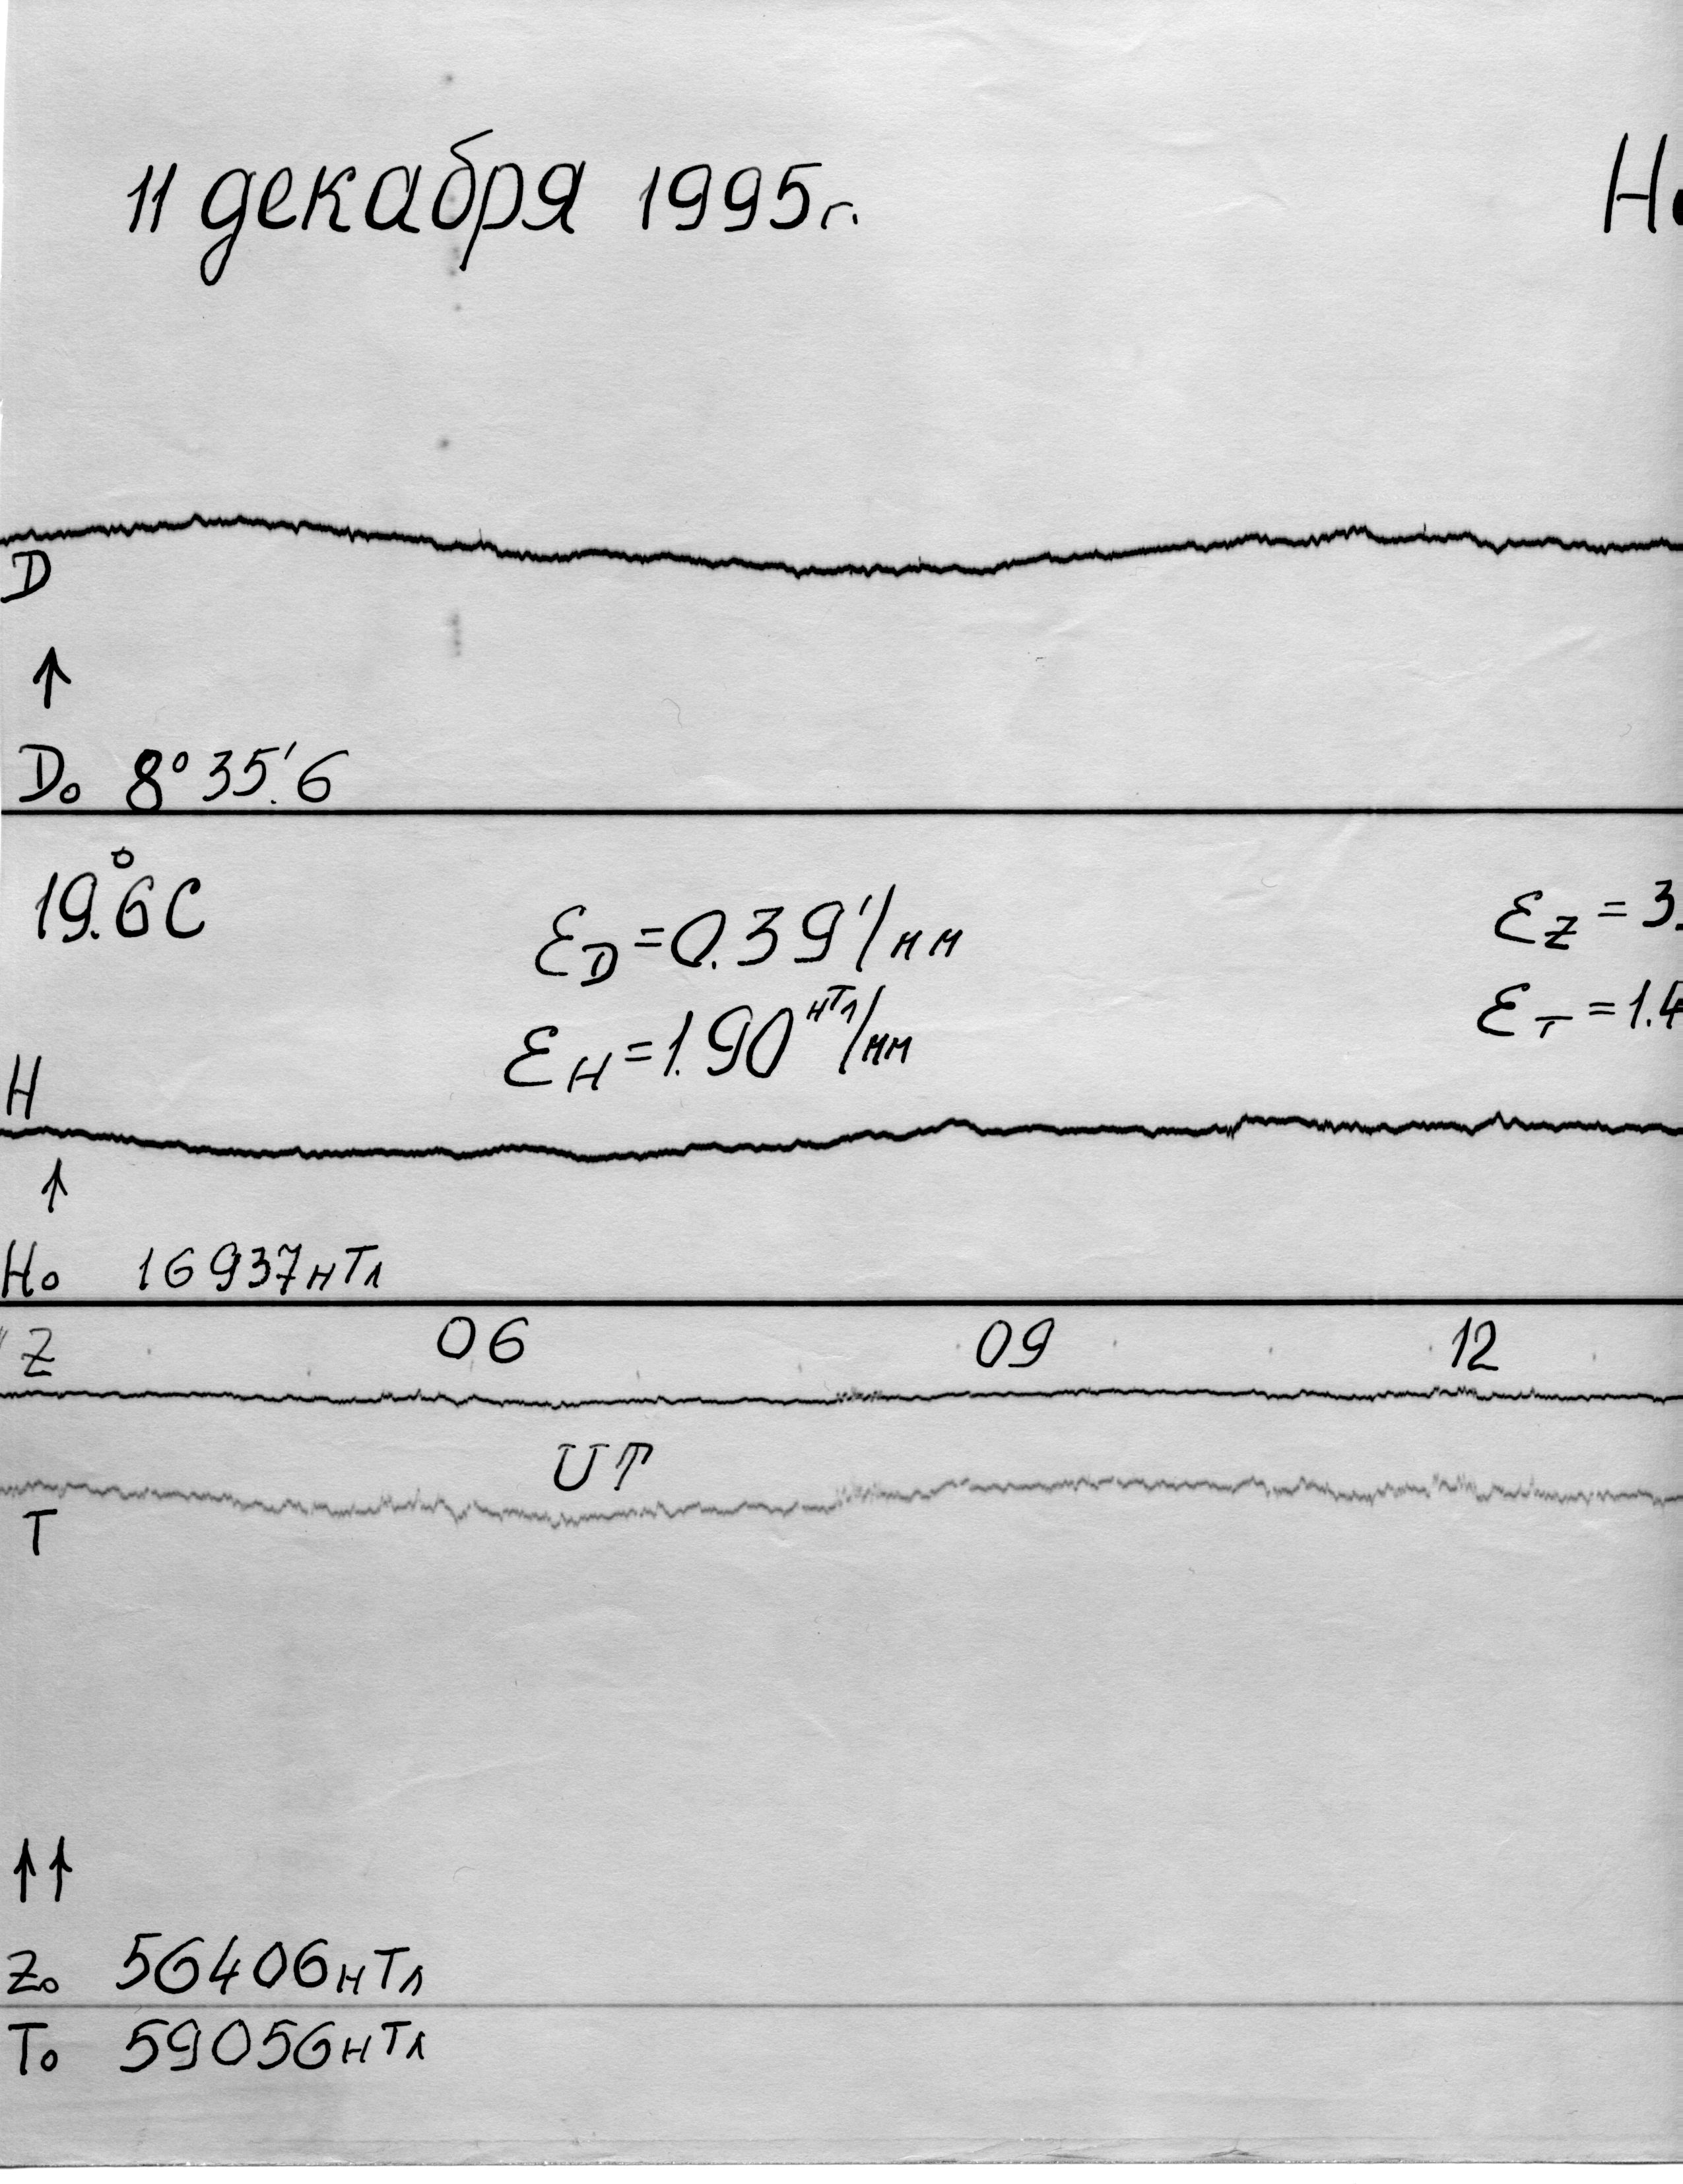 11 декабря 1995г.
D
↑
D₀ 8°35.′6
19.°6С
ε_D=0.39′/мм
ε_Z=3.
ε_H=1.90 нТл/мм
ε_T=1.4
H
↑
H₀ 16937нТл
Z 06 09 12
UT
T
↑↑
Z₀ 56406нТл
T₀ 59056нТл